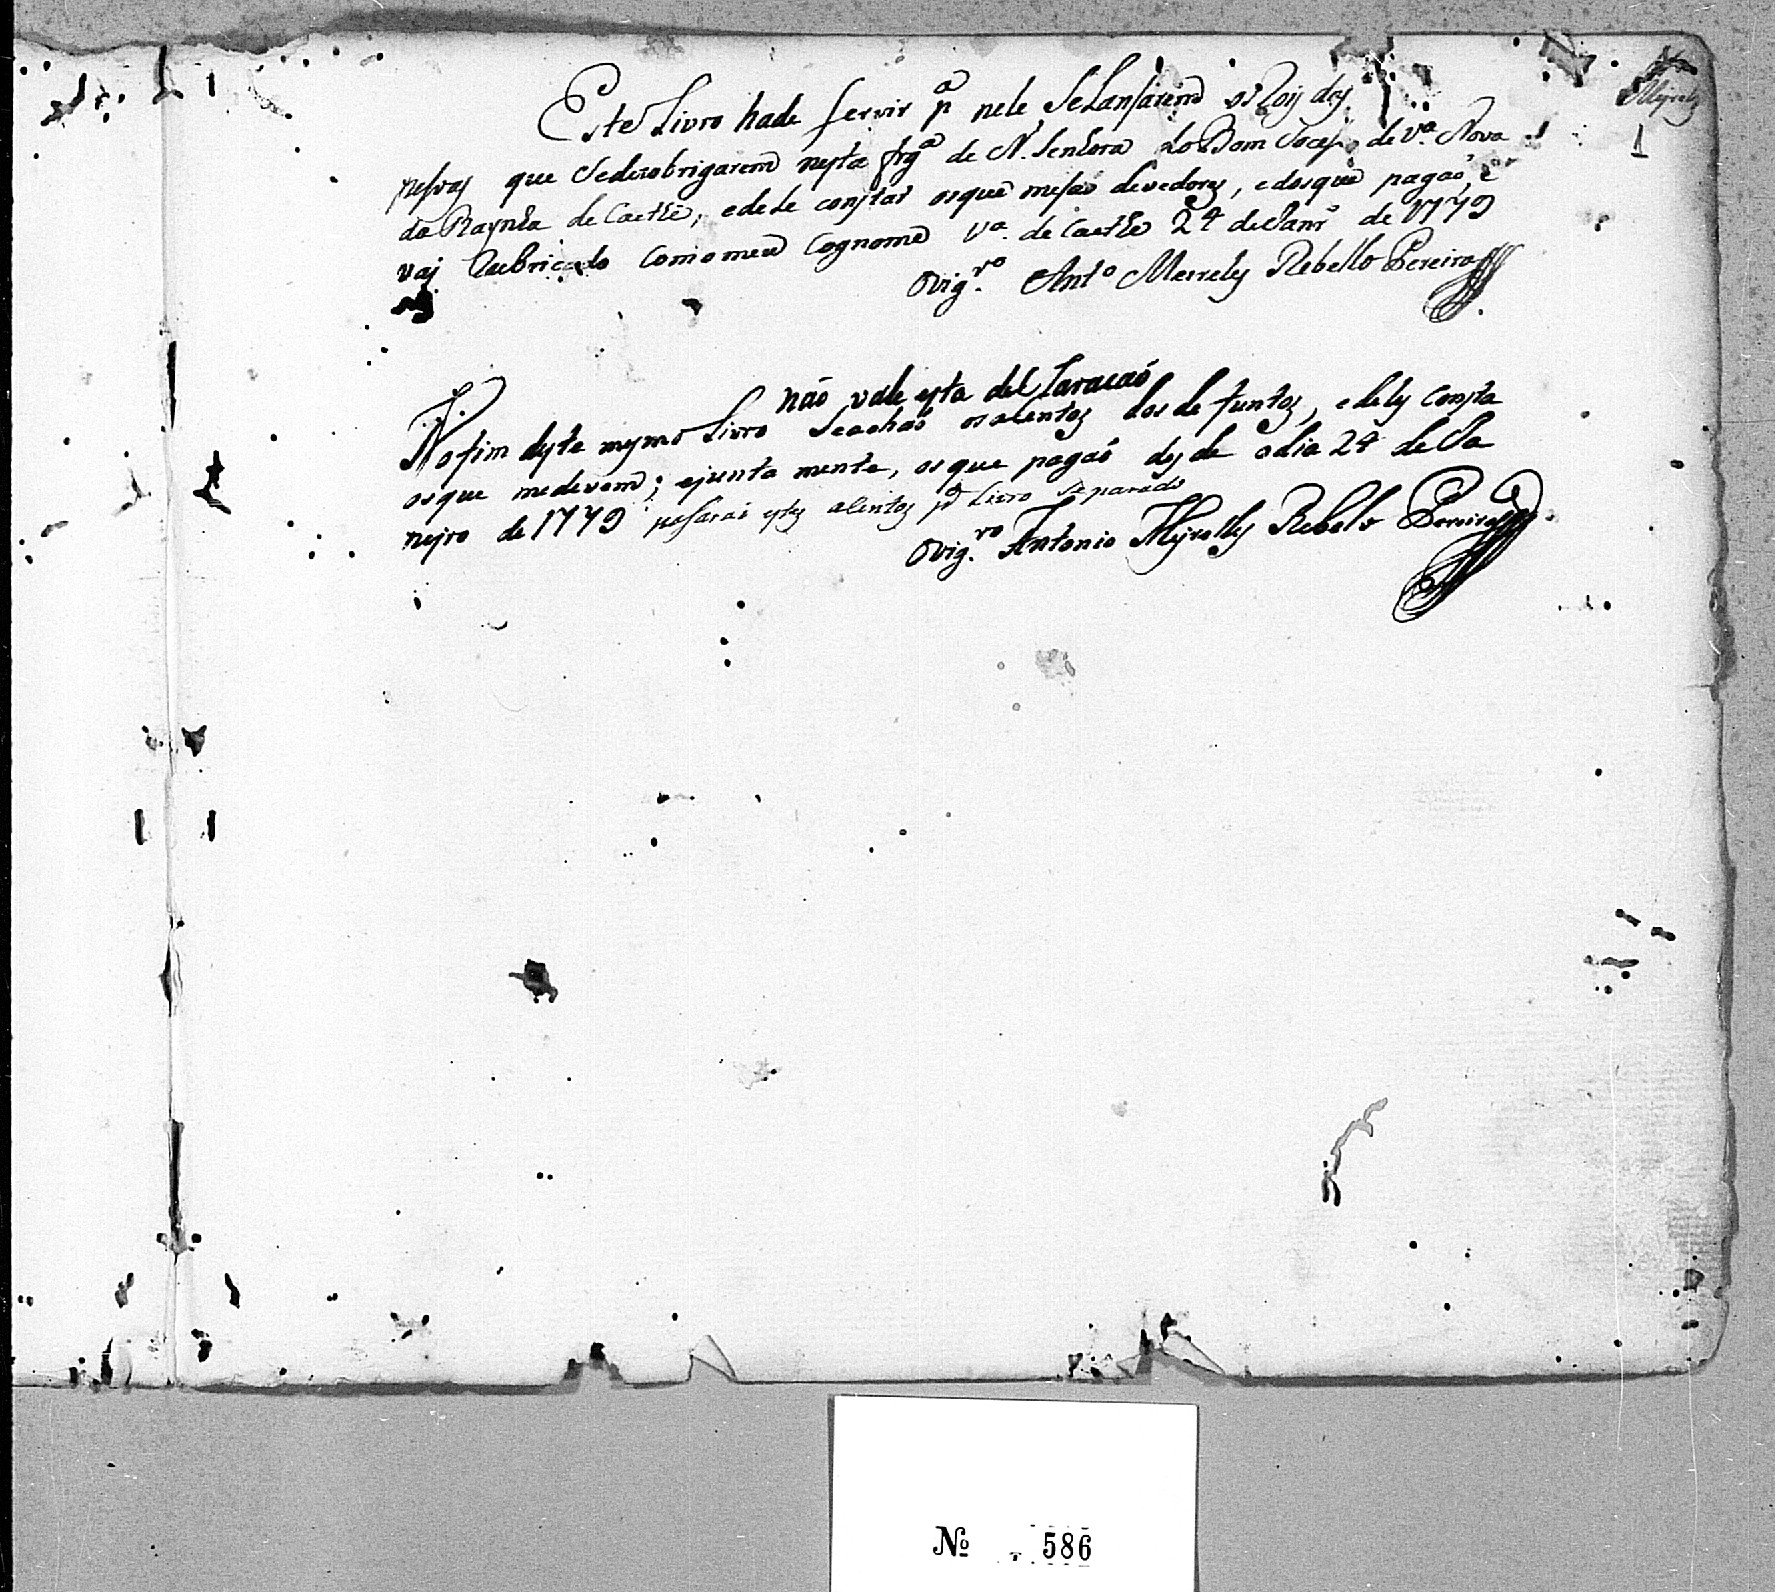 Meyrelz
1
Este Livro hade servir pª nele Selansarem os Rois das
pesoas que Sedezobrigarem nesta frgª de N. Senhora do Bom Sucesso de Vª. Nova
da Raynha de Caethe, edele constar osque mesão devedores, edosque pagaõ, e
vai Rubricado como meu Cognome Vª. de Caethe 24 de Janrº de 1779
Ovigrº. Antº Meirelys Rebello Pereira
não vale esta declaração
No fim deste mesmo Livro Seachaõ osasentos dos defuntos, edeles consta
osque medevem; ejunta mente, osque pagaõ desde odia 24 de Ja
neyro de 1779 pasaraõ estes asentos pª Livro Separado
Ovigrº. Antonio Meyrellys Rebelo Pereira
Nº 586